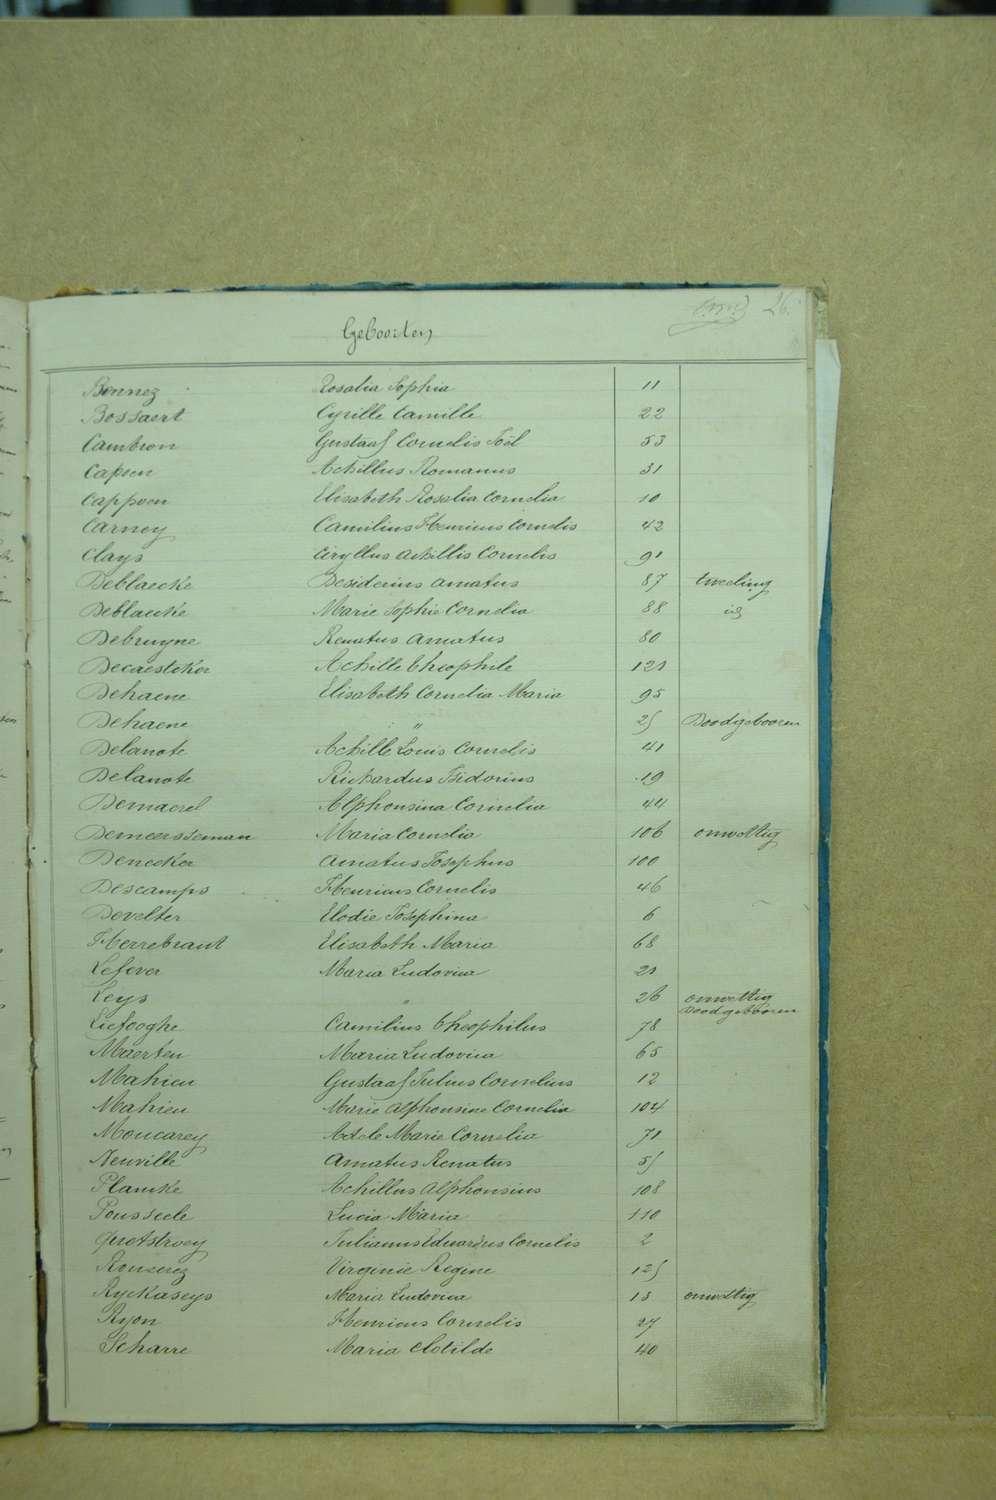 26.
Geboorten
Bennez Rosalia Sophia 11
Bossaert Cyrille Camille 22
Cambron Gustaaf Cornelis Joël 53
Capsen Achillus Romanus 31
Cappoen Elisabeth Rosalia Cornelia 10
Carney Camilius Henricus Cornelis 42
Clays Ciryllus Achillis Cornelis 91
Deblaecke Desiderius Amatus 87 tweeling
Deblaecke Marie Sophie Cornelia 88 id
Debruyne Renatus Amatus 80
Decaesteker Achille Theophile 121
Dehaene Elisabeth Cornelia Maria 95
Dehaene " 25 Doodgeboren
Delanote Achille Louis Cornelis 41
Delanote Richardus Isidorius 19
Demaerel Alphonsina Cornelia 44
Demeersseman Maria Cornelia 106 onwettig
Denecker Amatus Josephus 100
Descamps Henricus Cornelis 46
Develter Elodie Josephina 6
Herrebraut Elisabeth Maria 68
Lefever Maria Ludovica 21
Leys " 26 onwettig
Doodgeboren
Liefooghe Camilius Theophilus 78
Maerten Maria Ludovica 65
Mahieu Gustaaf Julius Cornelius 12
Mahieu Marie Alphonsine Cornelia 104
Moucarey Adele Marie Cornelia 71
Neuville Amatus Renatus 55
Plancke Achillus Alphonsius 108
Pousseele Lucia Maria 110
Quetstroey Julianus Eduardus Cornelis 2
Rouserez Virginie Regine 125
Ryckaseys Maria Ludovica 13 onwettig
Ryon Henricus Cornelis 27
Scharre Maria Clotilde 40